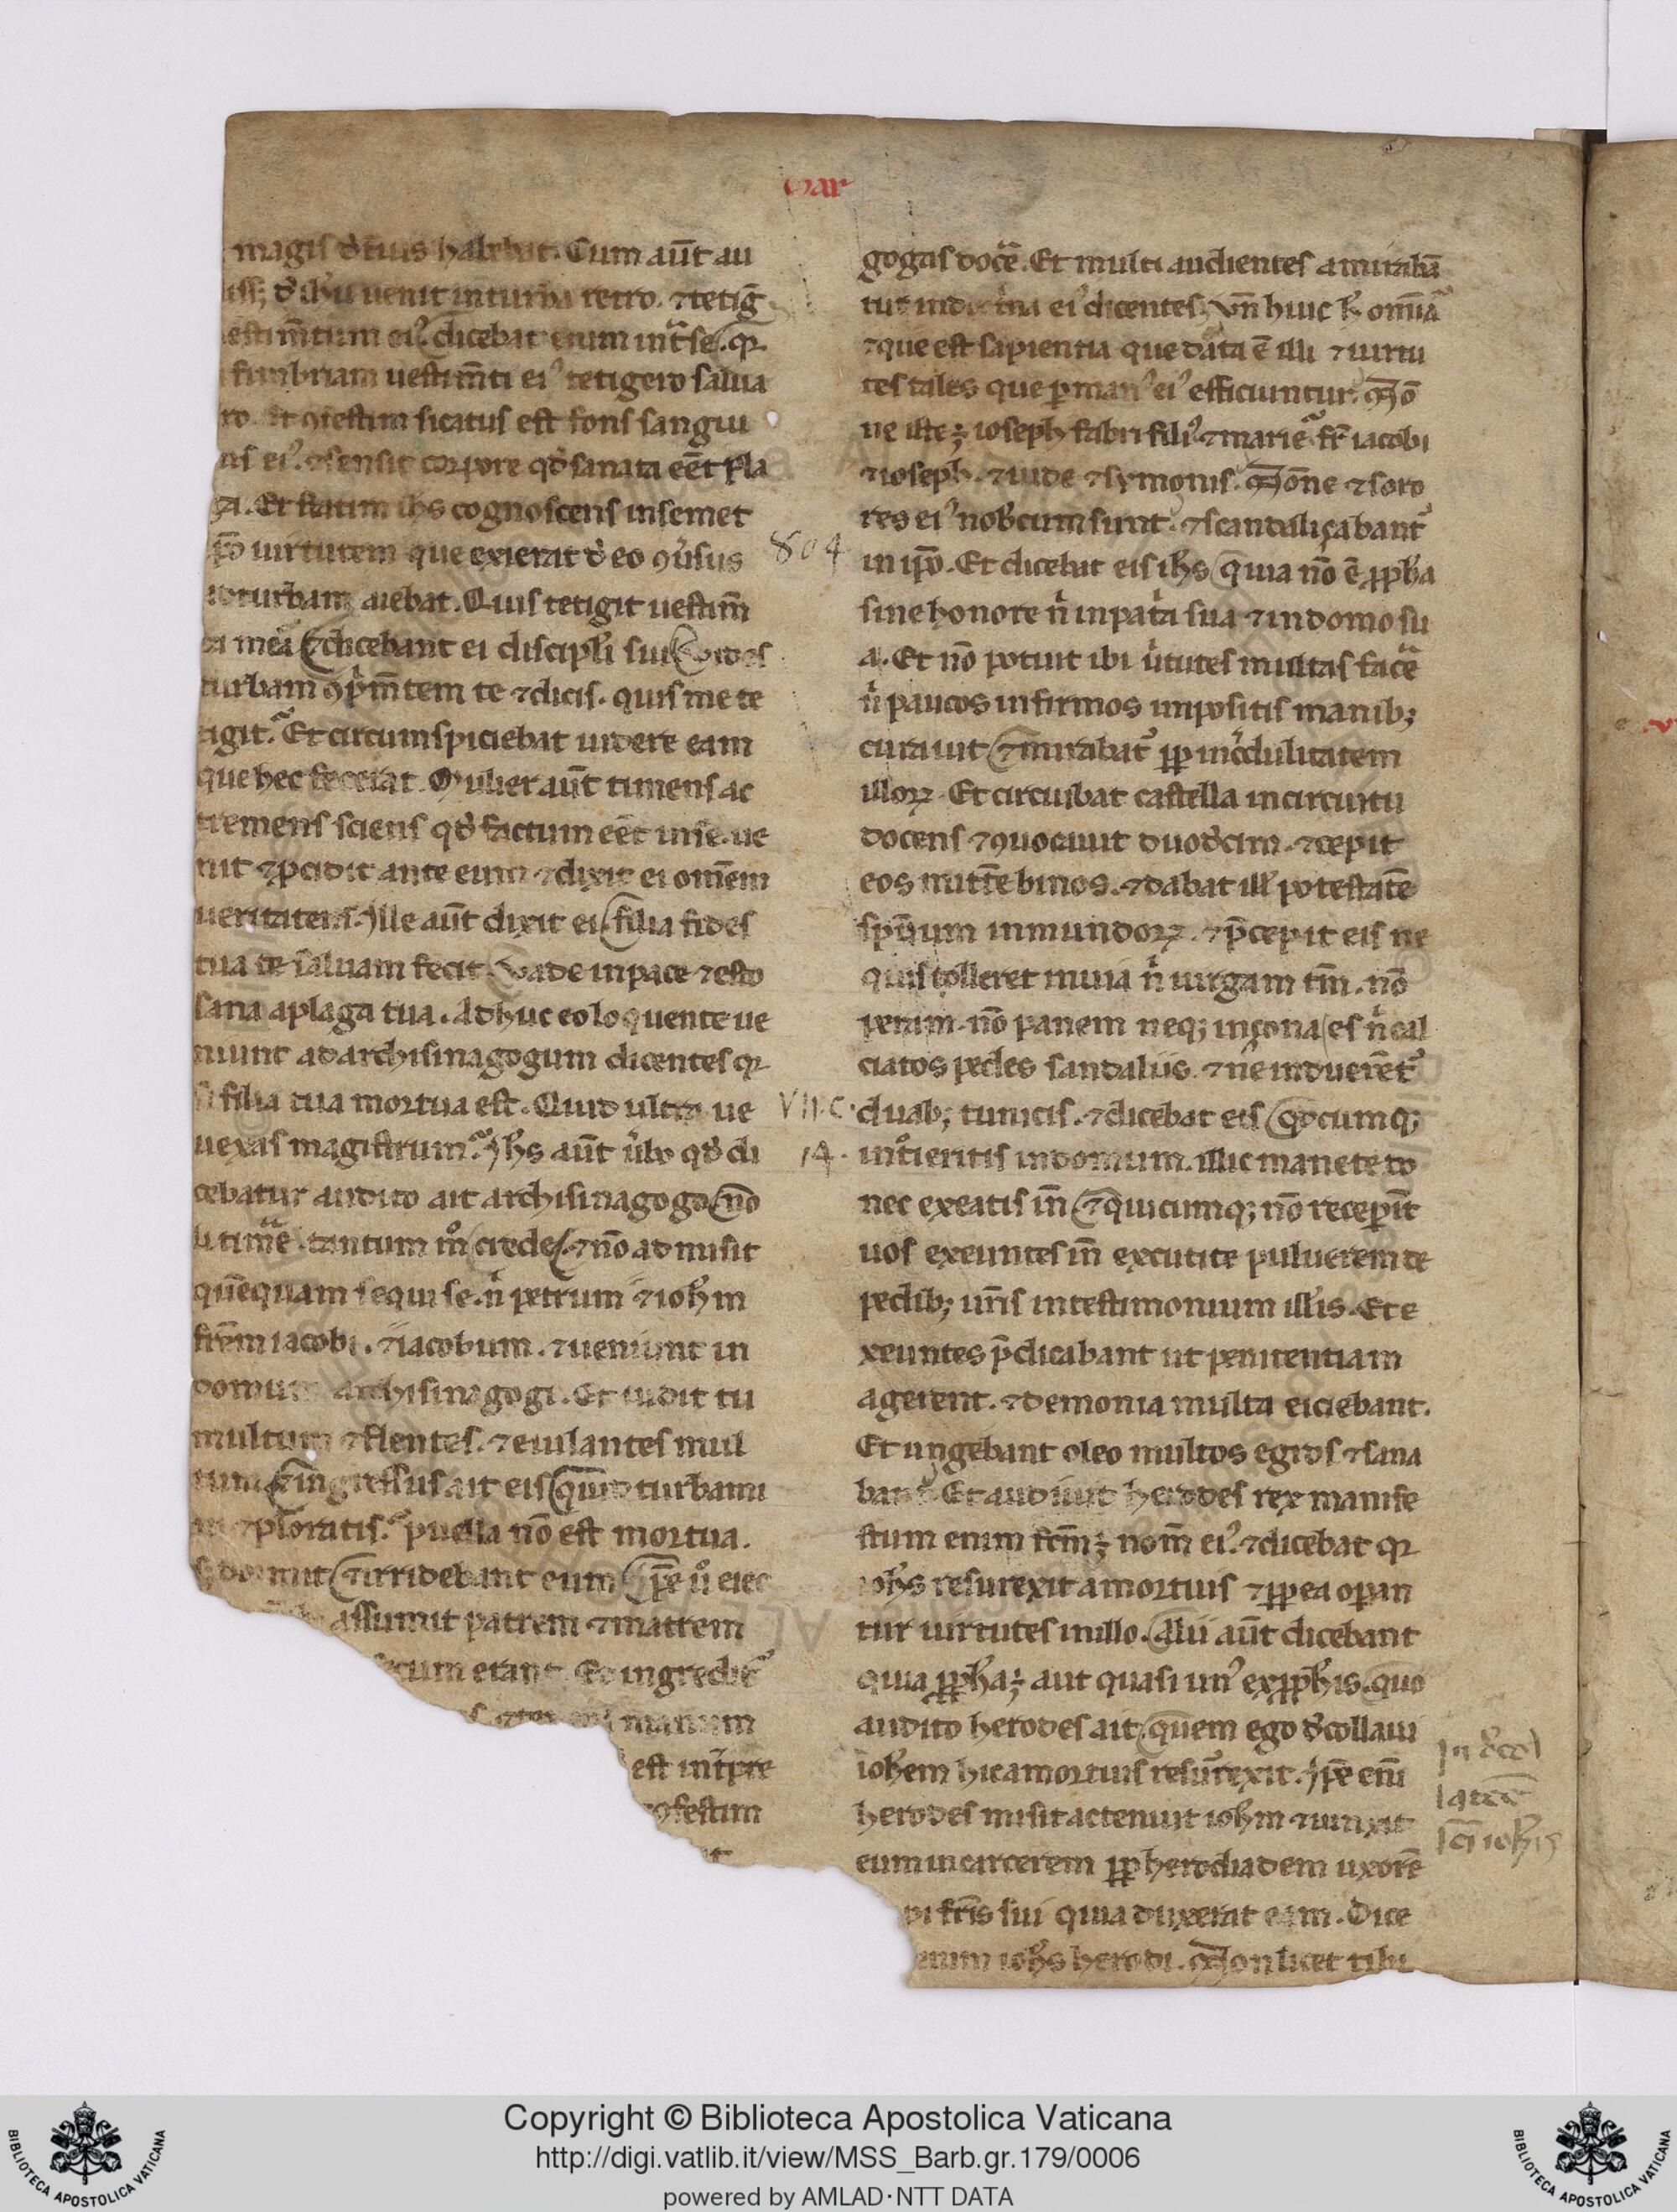 Mar
magis d̓t̄ius habebat. Cum aūt au
iss; d̓ ih̓u uenit in turba retro. ⁊ tetiḡ
estim̄tum ei᾽. dicebat enim int̄ se. qꝛ
fimbriam uestim̄ti ei᾽ tetigero salua
ro. Et ꝯfestim sicatus est fons sangui
nis ei᾽. ⁊ sensit corpore qd̓ sanata eēt pla
ga. Et statim ih̄s cognoscens in semet
ip̄o uirtutem que exierat d̓ eo ꝯu̓sus
ad turbam aiebat. Quis tetigit uestim̄
ta mea ⁊ dicebant ei discipl̓i sui Vides
turbam ꝯp̓m̄tem te ⁊ dicis. quis me te
tigit. Et circumspiciebat uidere eam
que hec fecerat. Mulier aūt timens ac
tremens sciens qd̓ factum eēt in se. ue
nit ⁊ p̄cidit ante eum ⁊ dixit ei om̄em
ueritatem. Ille aūt dixit ei filia fides
tua te saluam fecit Vade in pace ⁊ esto
sana a plaga tua. Adhuc eo loquente ue
niunt ad archisinagogum dicentes qꝛ
filia tua mortua est. Quid ultra ue
uexas magistrum. Ih̄s aūt u̓bo qd̓ di
cebatur audito ait archisinagogo nō
li tim̄e tantum m̊ crede ⁊ nō admisit
quēquam sequi se. n̓ petrum ⁊ ioh̓m
fr̄em iacobi. ⁊ iacobum. ⁊ ueniunt in
domum archisinagogi. Et uidit tu
multum ⁊ flentes. ⁊ eiulantes mul
tum ⁊ ingressus ait eis quid turbami
ni ⁊ ploratis. puella nō est mortua.
s; dormit ⁊ irridebant eum ip̄e u̓o eiec
assumit patrem ⁊ matrem
secum erant. Et ingrediūt᾽
manum
est int̄pre
ꝯfestim
gogas docē. Et multi audientes amirabā
tur in doctrina ei᾽ dicentes; Vn̄ huic h̓ omīa
⁊ que est sapientia que data ē illi ⁊ uirtu
tes tales que p man᾽ ei᾽ efficiuntur. Nō
ne iste ÷ ioseph fabri fili᾽ ⁊ marie fr̄ iacobi
⁊ ioseph. ⁊ iude ⁊ symonis. Nōne ⁊ soro
res ei᾽ nob̓cum sunt. ⁊ scandaliçabant᾽
804
in ip̄o. Et dicebat eis ih̄s quia nō ē ꝓph̓a
sine honore n̓ in pat̓a sua ⁊ in domo su
a. Et nō potuit ibi u̓tutes multas facē
n̓ paucos infirmos impositis manib;
curauit ⁊ mirabat᾽ ꝓp inc̓dulitatem
illoꝝ. Et circuibat castella in circuitu
docens ⁊ ꝯuocauit duod̓cim. ⁊ cepit
eos mittē binos. ⁊ dabat ill̓ potestatē
sp̄uum inmundoꝝ. ⁊ p̄cepit eis ne
quis tolleret in uia n̓ uirgam tm̄. nō
peram. nō panem neq; in çona es n̓ cal
ciatos pedes sandaliis. ⁊ ne induerēt᾽
VII. c.
duab; tunicis. ⁊ dicebat eis qd̓cumq;
14.
int̊ieritis in domum. illic manete do
nec exeatis in̄ ⁊ quicumq; nō recepīt
uos exeuntes in̄ excutite puluerem de
pedib; ur̄is in testimonium ill̓is. Et e
xeuntes p̄dicabant ut penitentiam
agerent. ⁊ demonia multa eiciebant.
Et ungebant oleo multos egros ⁊ sana
bant᾽. Et audiuit herodes rex manife
stum enim fcm̄ ÷ nom̄ ei᾽. ⁊ dicebat qꝛ
ioh̄s resurexit a mortuis ⁊ ꝓp ea opan
tur uirtutes in illo. Alii aūt dicebant
quia ꝓph̓a ÷ aut quasi un᾽ ex ꝓph̓is. quo
audito herodes ait quem ego d̓collaui
ioh̓em hic a mortuis resur̄exit. Ip̄e enī
herodes misit ac tenuit ioh̓m ⁊ uinxit
eum in carcerem ꝓp herodiadem uxorē
pi fr̄is sui quia duxerat eam. Dice
enim ioh̓s herodi. Non licet tibi
In d̓col
latōē
sc̄i ioh̓is
Copyright © Biblioteca Apostolica Vaticana
http://digi.vatlib.it/view/MSS_Barb.gr.179/0006
powered by AMLAD·NTT DATA
BIBLIOTECA APOSTOLICA VATICANA
BIBLIOTECA APOSTOLICA VATICANA